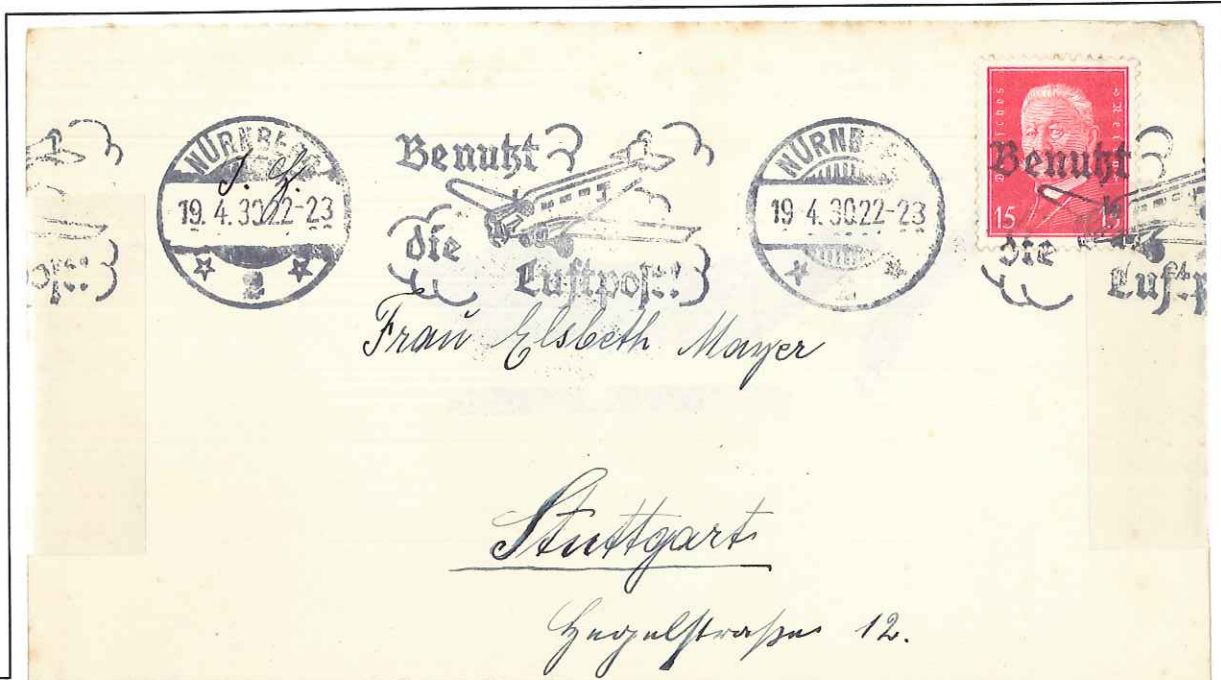 NÜRNBERG
J. H.
19. 4. 30.22-23
2
Benutzt
die
Luftpost!
NÜRNBERG
19 4.30.22-23
2
Deutsches Reich
15 15
Benutzt
die
Luftp
Frau Elsbeth Mayer
Stuttgart
Hegelstraße 12.